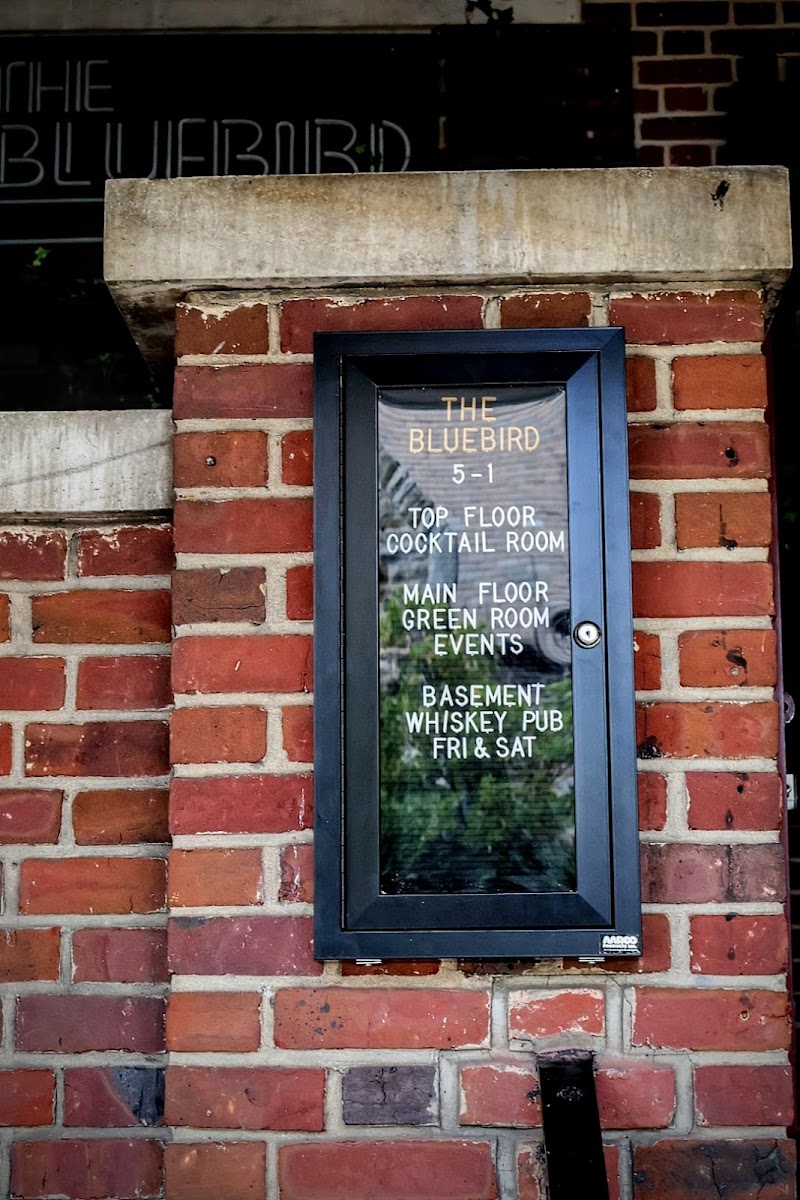 THE
BLUEBIRD
THE
BLUEBIRD
5-1
TOP FLOOR
COCKTAIL ROOM
MAIN FLOOR
GREEN ROOM
EVENTS
BASEMENT
WHISKEY PUB
FRI & SAT
AARCO